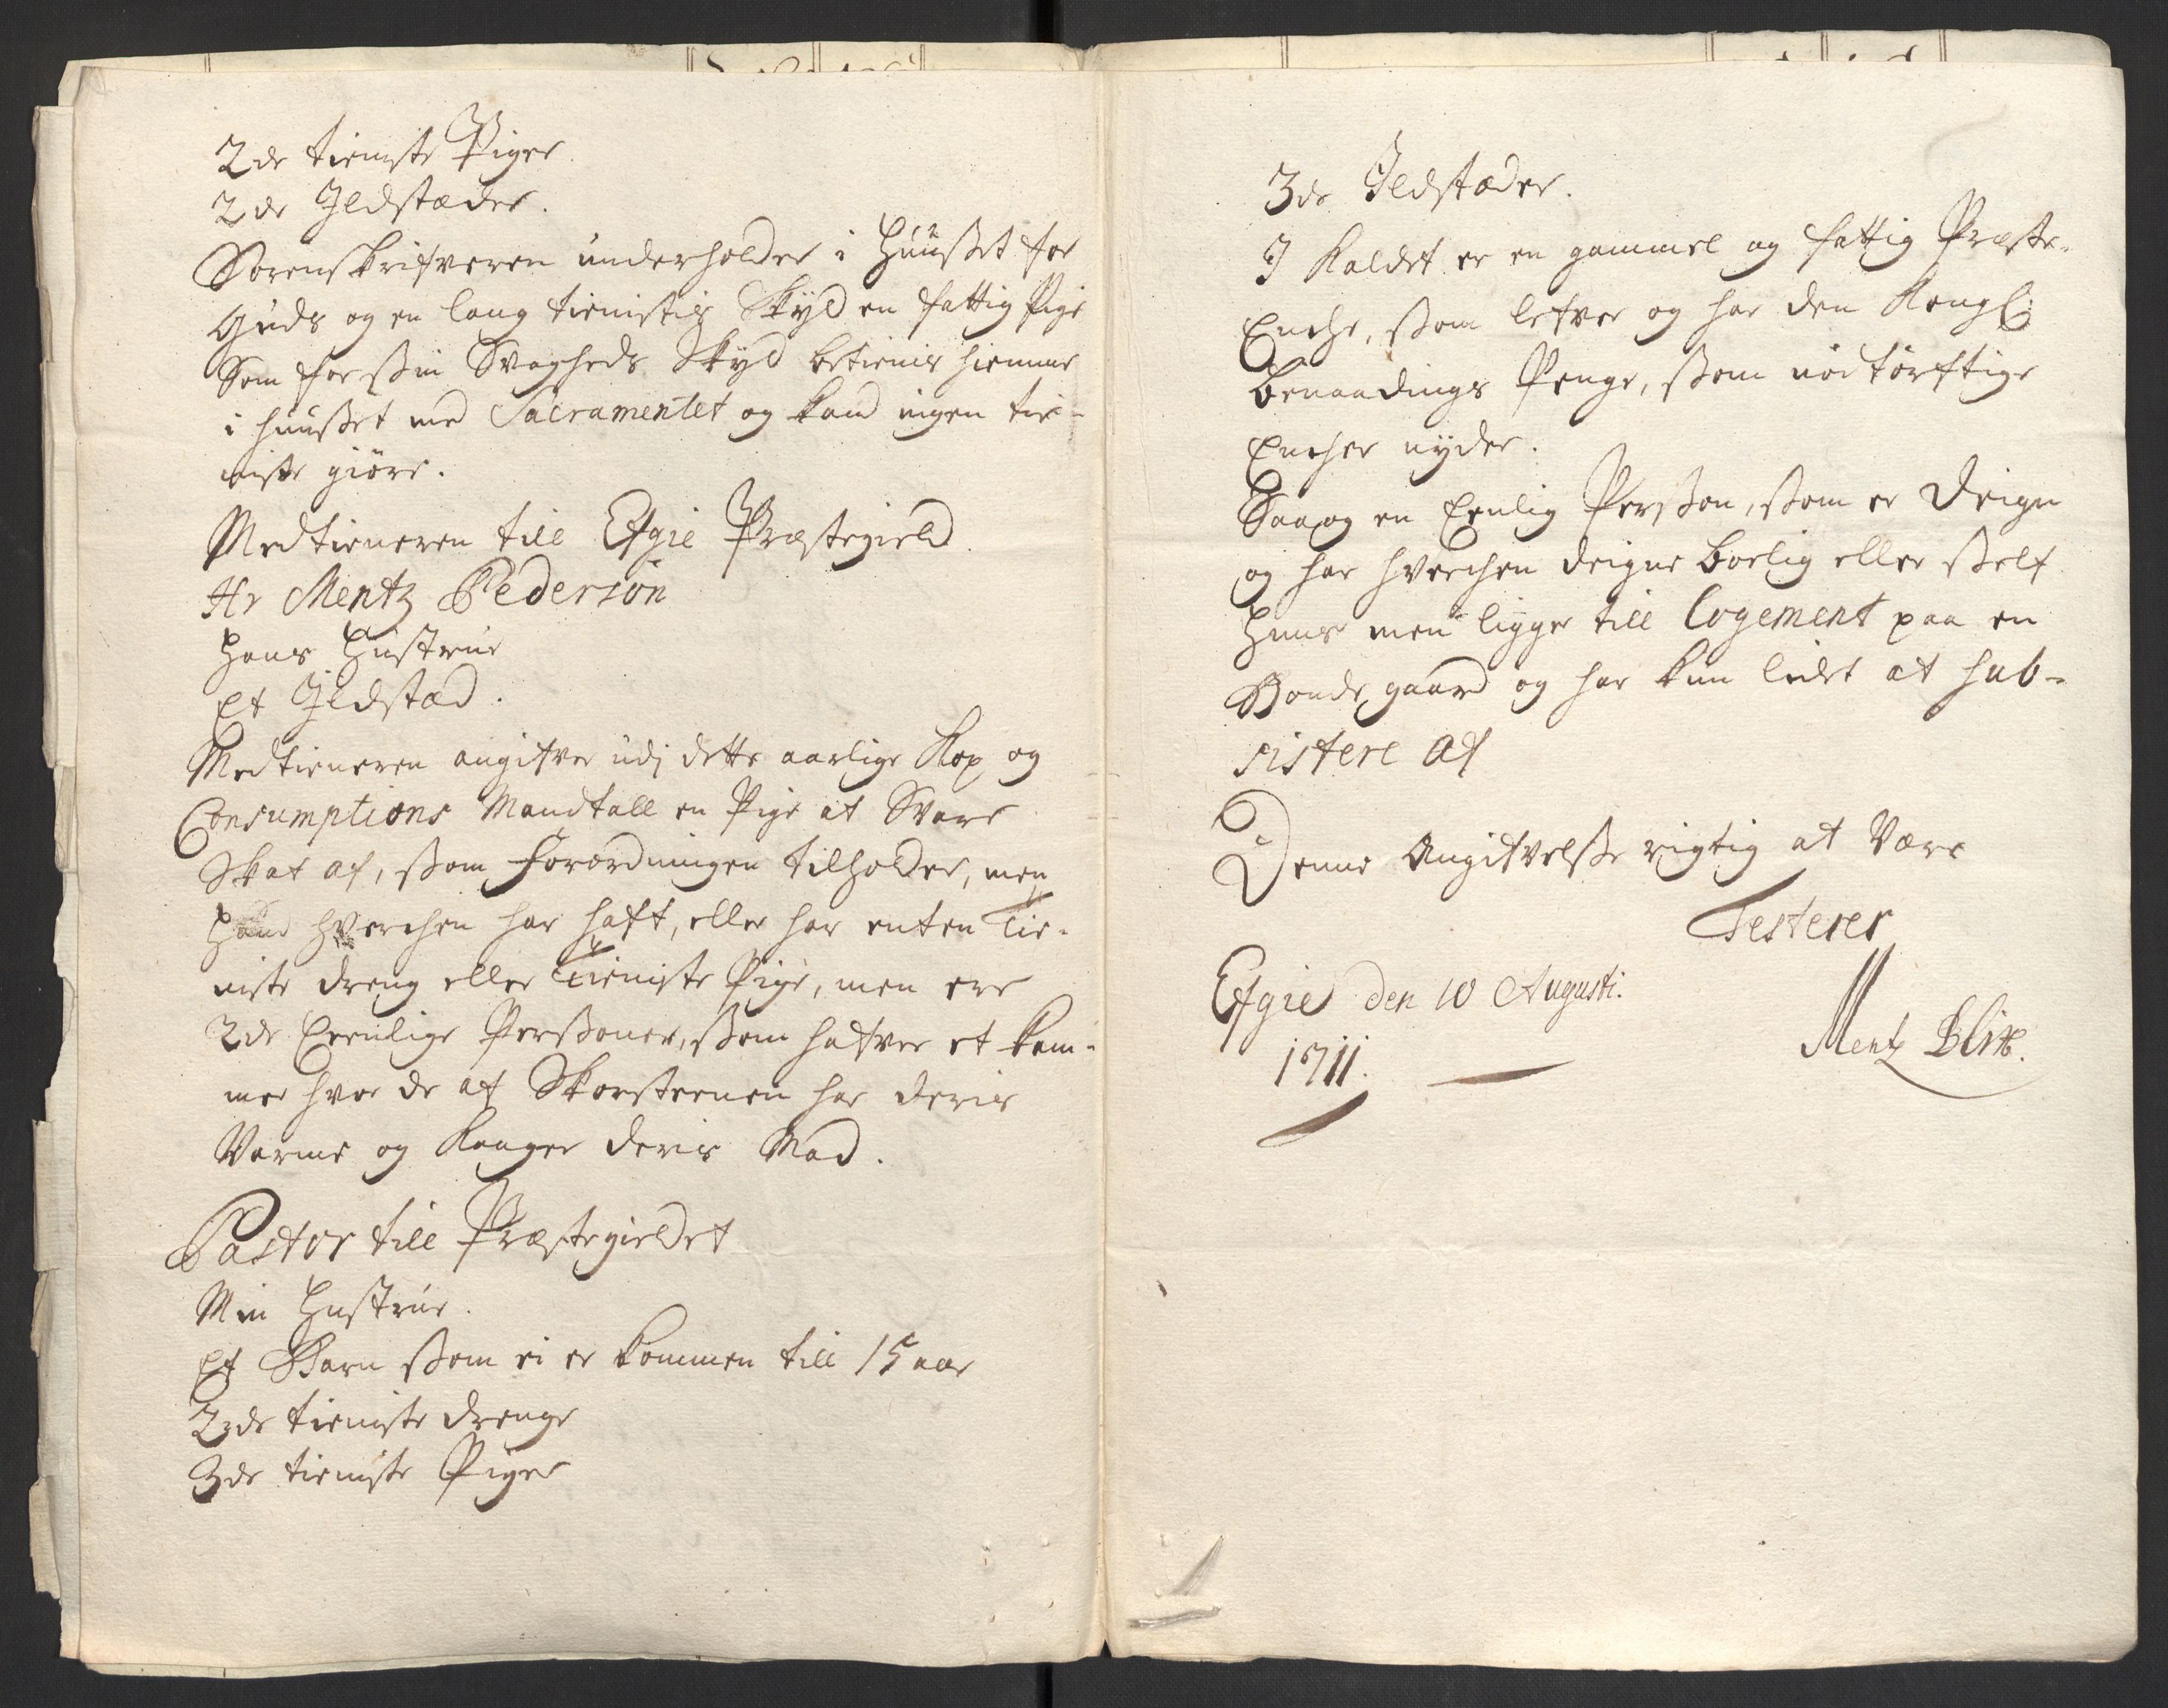 2de tieniste Piger
2de Ildstæder.
Sorenskrifveren underholder i Huusset for
Guds og en lang tienistis Skyld en fattig Pige
Som for ssin Svagheds Skyld betienis hiemme
i huusset med Sacramentet og kand ingen tie-
niste giöre.
Medtieneren till Efgie Præstegield
Hr Mentz Pedersön
Hans Hustrue
Et Ildstæd.
Medtieneren angifver udj dette aarlige Kop og
Consumptions Mandtall en Pige at Svare
Skat af, ssom Forordningen tilholder, men
hand hverchen har haft, eller har enten Tie-
niste dreng eller Tieniste Pige, men ere
2de Eenlige Perssoner, ssom hafver et kam-
mer hvor de af Skorsteenen har deris
Varme og Kaager deris Mad.
Pastor till Præstegieldet
Min Hustrue.
Et Barn ssom ei er kommen till 15 aar
2de tieniste drenge
3de tieniste Piger
3de Ildstæder.
I Kaldet er en gammel og fattig Præste-
Enche, ssom lefver og har den Kongl:
Benaadings Penge, ssom nödtörftige
Encher nyder.
Saa og en Eenlig Persson, ssom er Deign
og har hverchen deigne boelig eller sself
Huus men ligger till Logement paa en
Bondegaard og har kun lidet at sub-
sistere af
Denne Angifvelsse rigtig at Være
Testerer
Efgie den 10 Augusti.
1711.
Mentz Blix.